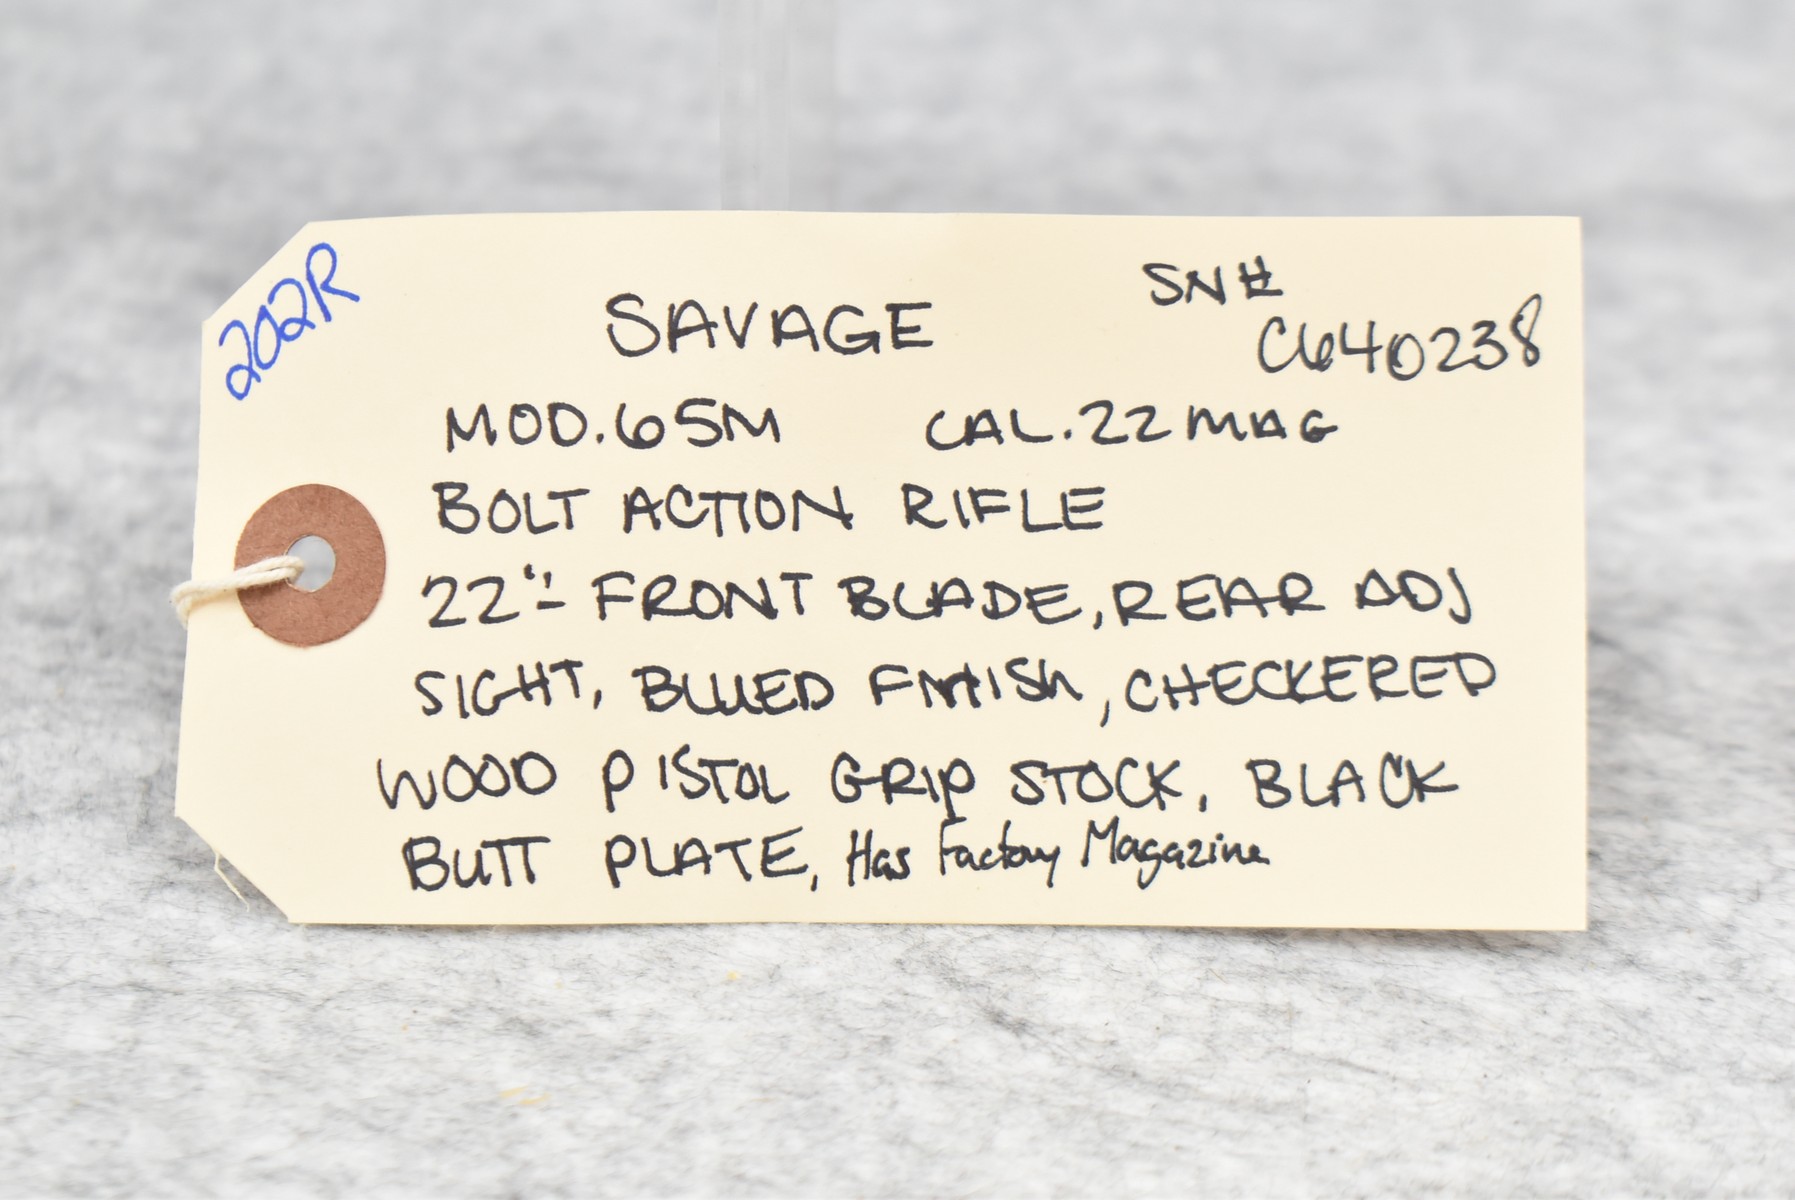 202R
SAVAGE
SN#
C640238
MOD. 65M CAL. 22 MAG
BOLT ACTION RIFLE
22"- FRONT BLADE, REAR ADJ
SIGHT, BLUED FINISH, CHECKERED
WOOD PISTOL GRIP STOCK, BLACK
BUTT PLATE, Has Factory Magazine